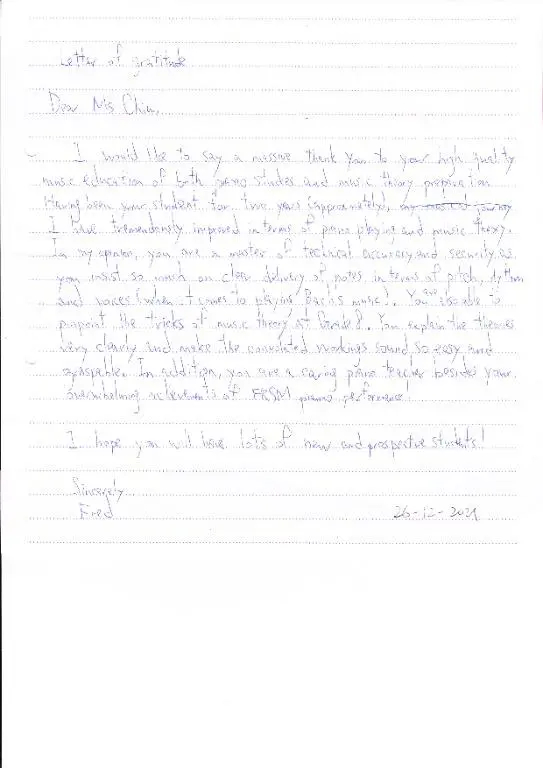 Letter of gratitude
Dear Ms Chiu,
I would like to say a massive thank you to your high quality
music education of both piano studies and music theory preparation.
Having been your student for two years (approximately), my musical journey
I have tremendously improved in terms of piano playing and music theory.
In my opinion, you are a master of technical accuracy and security as
you insist so much on clear delivery of notes in terms of pitch, rythm
and voices (when it comes to playing Bach's music). You are also able to
pinpoint the tricks of music theory at Grade 8. You explain the theories
very clearly and make the convoluted workings sound so easy and
graspable. In addition, you are a caring piano teacher besides your
overwhelming achievements of FRSM piano performance.
I hope you will have lots of new and prospective students!
Sincerely
Fred
26-12-2021